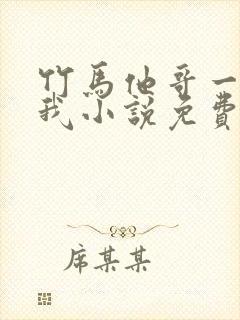 竹馬他哥一
我小說免費
席某某